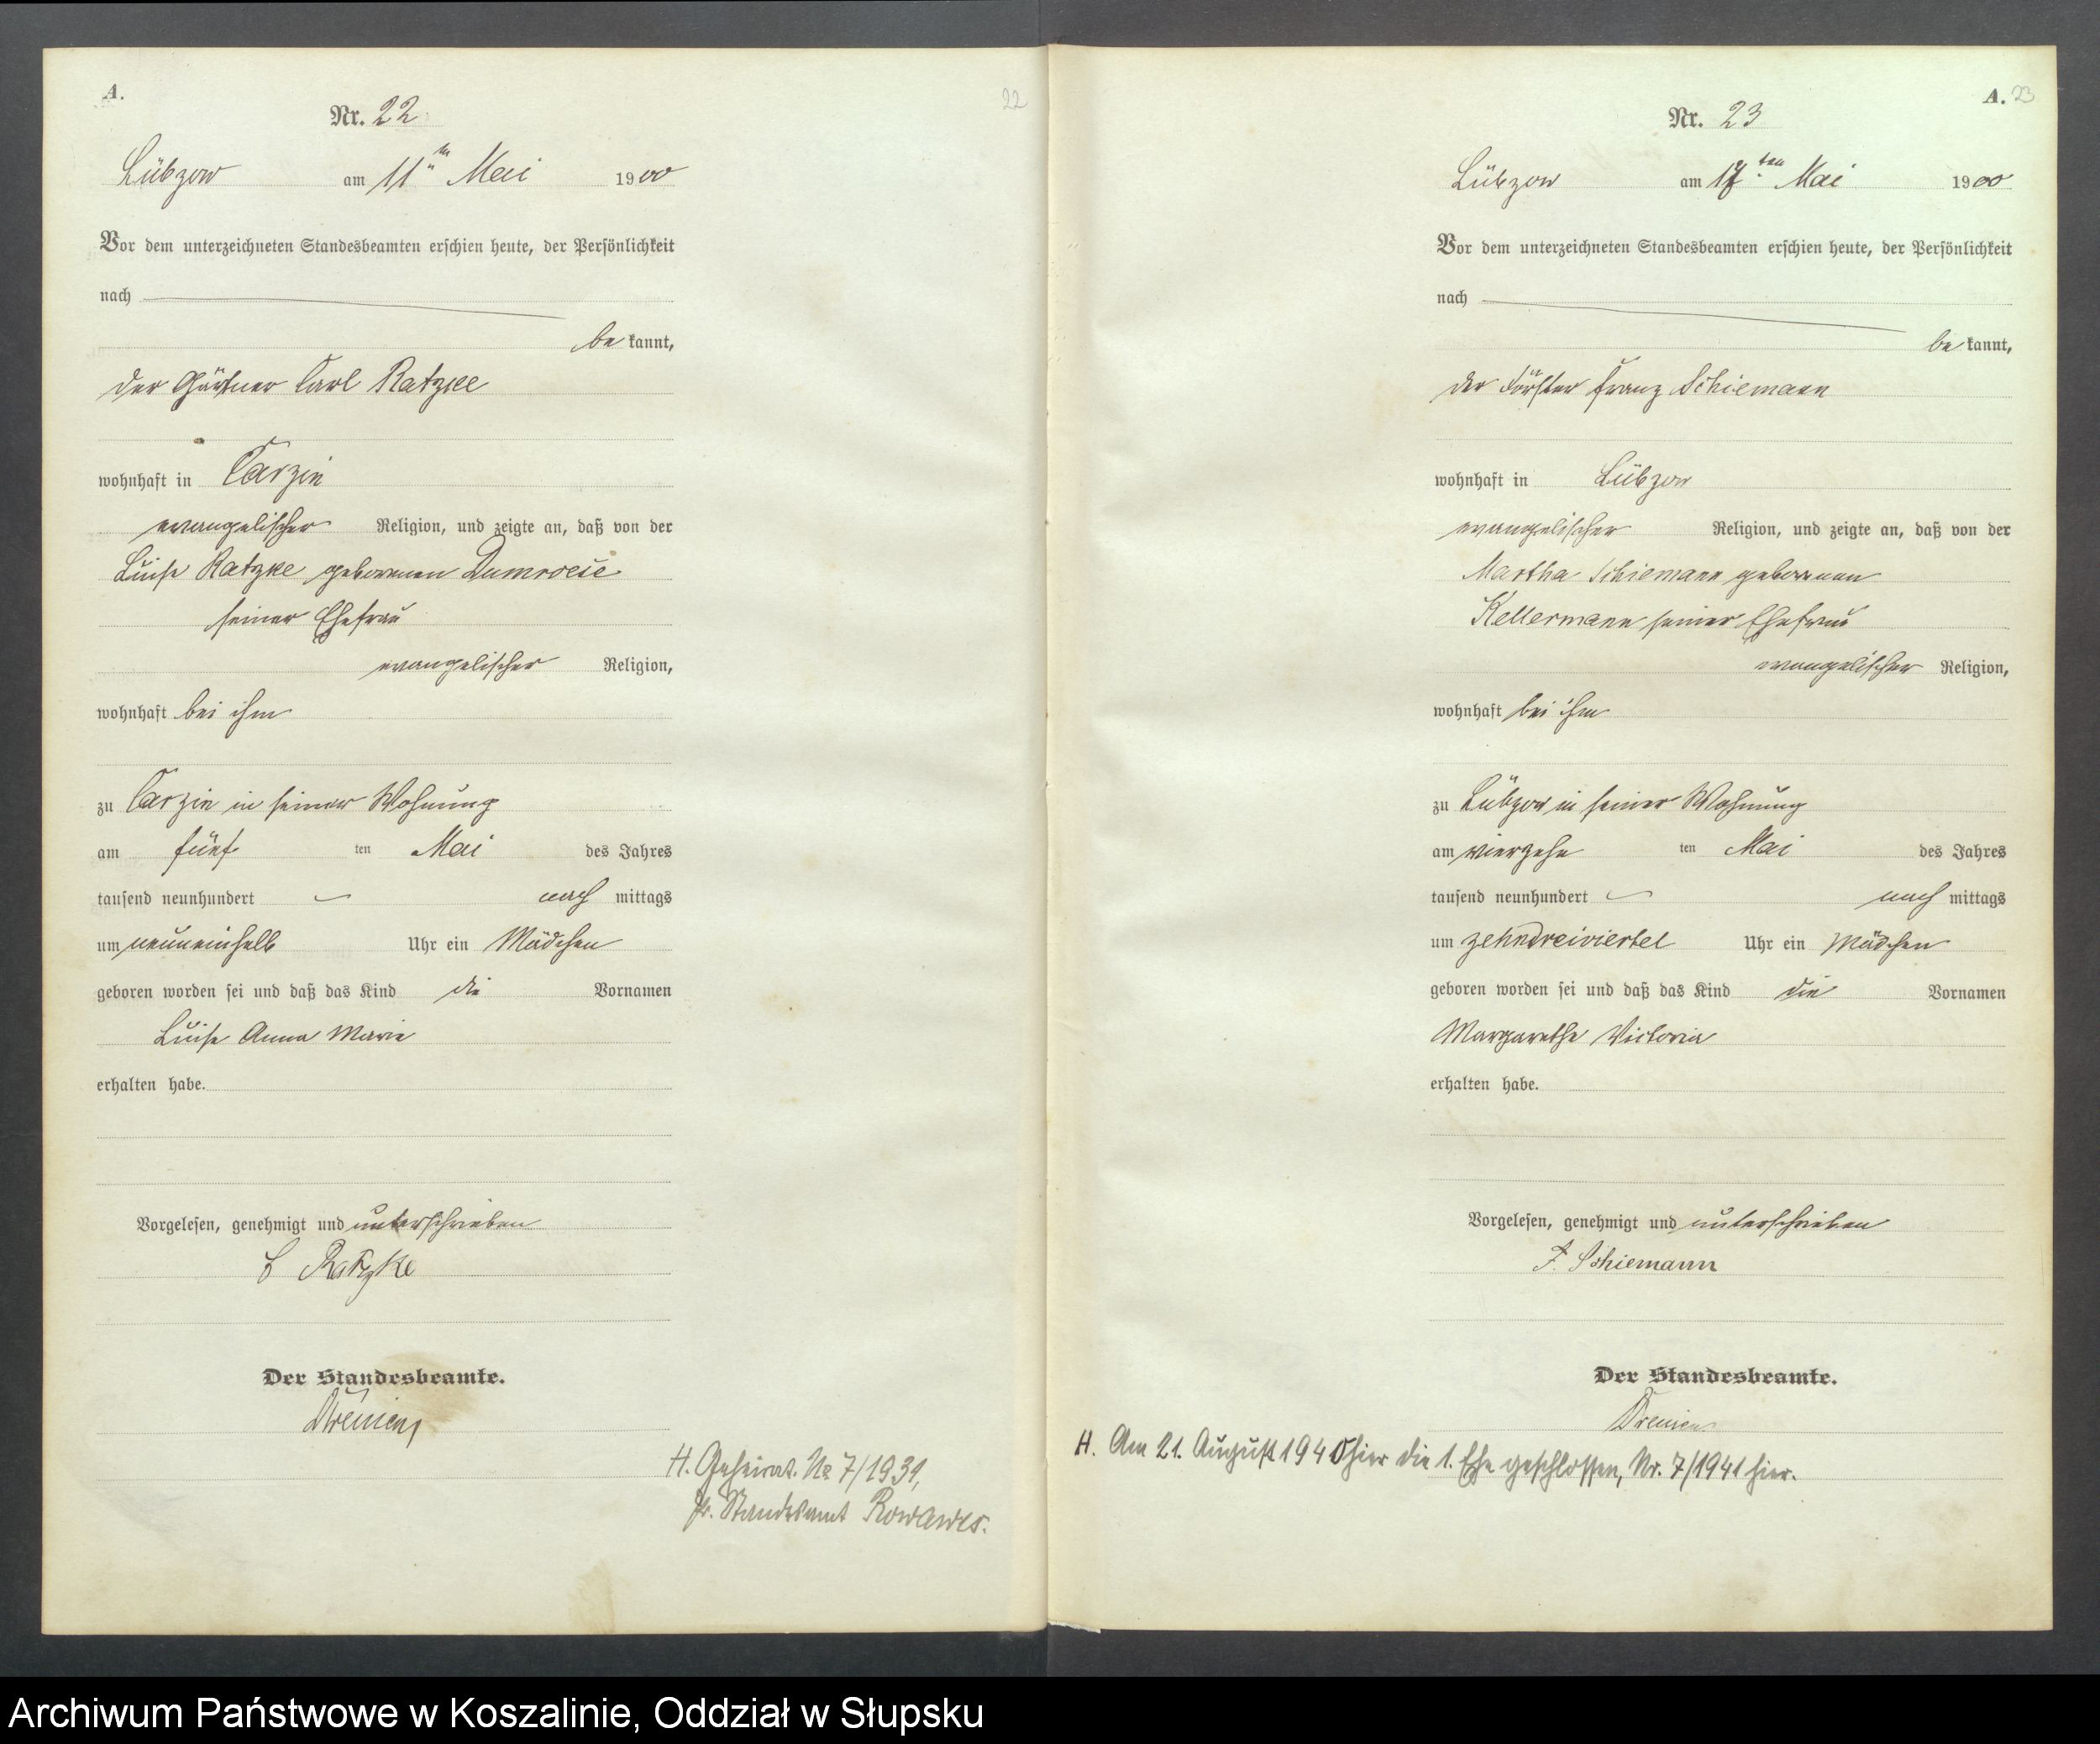 A.
22
Nr. 22
Lübzow am 11ten Mai 1900
Vor dem unterzeichneten Standesbeamten erschien heute, der Persönlichkeit
nach
be kannt,
der Gärtner Carl Ratzke
wohnhaft in Carzin
evangelischer Religion, und zeigte an, daß von der
Luise Ratzke geborenen Dumroese
seiner Ehefrau
evangelischer Religion,
wohnhaft bei ihm
zu Carzin in seiner Wohnung
am fünf ten Mai des Jahres
tausend neunhundert nach mittags
um neuneinhalb Uhr ein Mädchen
geboren worden sei und daß das Kind die Vornamen
Luise Anna Marie
erhalten habe.
Vorgelesen, genehmigt und unterschrieben
C Ratzke
Der Standesbeamte.
H. Geheirat. No 7/1931,
Standesamt
A. 23
Nr. 23
Lübzow am 17ten Mai 1900
Vor dem unterzeichneten Standesbeamten erschien heute, der Persönlichkeit
nach
be kannt,
der Förster Franz Schiemann
wohnhaft in Lübzow
evangelischer Religion, und zeigte an, daß von der
Martha Schiemann geborenen
Kellermann seiner Ehefrau
evangelischer Religion,
wohnhaft bei ihm
zu Lübzow in seiner Wohnung
am vierzehn ten Mai des Jahres
tausend neunhundert nach mittags
um zehndreiviertel Uhr ein Mädchen
geboren worden sei und daß das Kind die Vornamen
Margarethe Victoria
erhalten habe.
Vorgelesen, genehmigt und unterschrieben
F. Schiemann
Der Standesbeamte.
H. Am 21. August 1940 hier die 1. Ehe geschlossen, Nr. 7/1941 hier.
Archiwum Państwowe w Koszalinie, Oddział w Słupsku